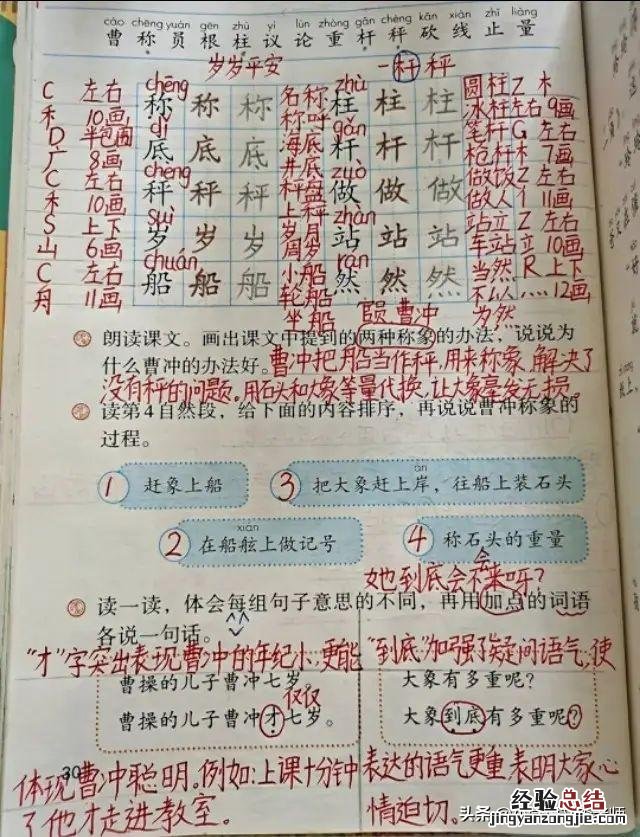 cáo chēng yuán gēn zhù yì lùn zhòng gǎn chèng kǎn xiàn zhǐ liàng
曹 称 员 根 柱 议 论 重 杆 秤 砍 线 止 量
岁岁平安 一杆秤
C 左右 chēng 称 称 称 名称 zhù 柱 柱 柱 圆柱 Z 木
禾 10画 称呼 冰柱 左右 9画
D 半包围 dǐ 底 底 底 海底 gǎn 杆 杆 杆 笔杆 G 左右
广 8画 井底 枪杆 木 7画
C 左右 chèng 秤 秤 秤 秤盘 zuò 做 做 做 做饭 Z 左右
禾 10画 上秤 做人 亻 11画
S 上下 suì 岁 岁 岁 岁月 zhàn 站 站 站 站立 Z 左右
山 6画 周岁 车站 立 10画
C 左右 chuán 船 船 船 小船 rán 然 然 然 当然 R 上下
舟 11画 轮船 不以 灬 12画
坐船 官员 曹冲 为然
朗读课文。画出课文中提到的两种称象的办法，说说为
什么曹冲的办法好。曹冲把船当作秤，用来称象，解决了
没有秤的问题。用石头和大象等量代换，让大象毫发无损。
读第4自然段，给下面的内容排序，再说说曹冲称象的
过程。
1 赶象上船
àn
3 把大象赶上岸，往船上装石头
xián
2 在船舷上做记号
4 称石头的重量
她到底会不会来呀？
读一读，体会每组句子意思的不同，再用加点的词语
各说一句话。
"才"字突出表现曹冲的年纪小，更能
曹操的儿子曹冲七岁。
仅仅
曹操的儿子曹冲才七岁。
体现曹冲聪明。例如：上课十分钟
了他才走进教室。
"到底"加强了疑问语气，使
大象有多重呢？
大象到底有多重呢？
表达的语气更重表明大家心
情迫切。
30
经验总结
jingyanzongjie.com